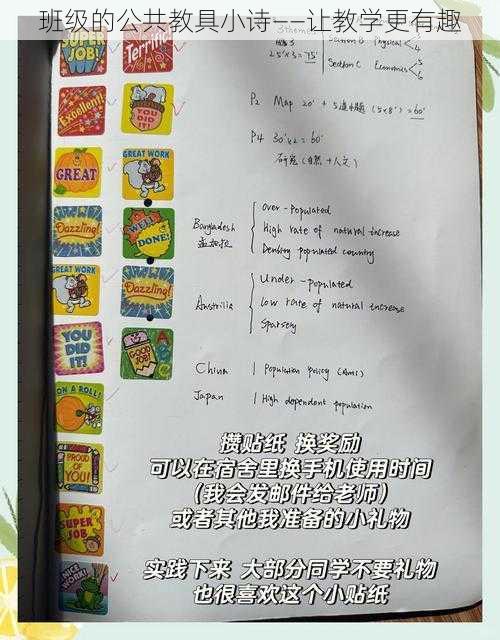 班级的公共教具小诗——让教学更有趣
SUPER JOB!
Terrific
Excellent!
YOU DID IT!
GREAT
GREAT WORK
Dazzling!
WELL DONE!
GREAT WORK
Dazzling!
YOU DID IT!
GOOD JOB!
ON A ROLL!
PROUD OF YOU!
SUPER JOB
NICE WORK!
3themes
25'x3=75'
Section B Physical
4
Section C Economics
5
6
P2 Map 20' + 5 (5x8') = 60'
P4 30'x2 = 60'
研究(自然+人文)
Bangladesh
孟加拉
Over-populated
High rate of natural increase
Density populated country
Austrilia
Under-populated
low rate of natural increase
Sparsery
China 1 Population policy
Japan 1 High dependent population
攒贴纸 换奖励
可以在宿舍里换手机使用时间
(我会发邮件给老师)
或者其他我准备的小礼物
实践下来 大部分同学不要礼物
也很喜欢这个小贴纸